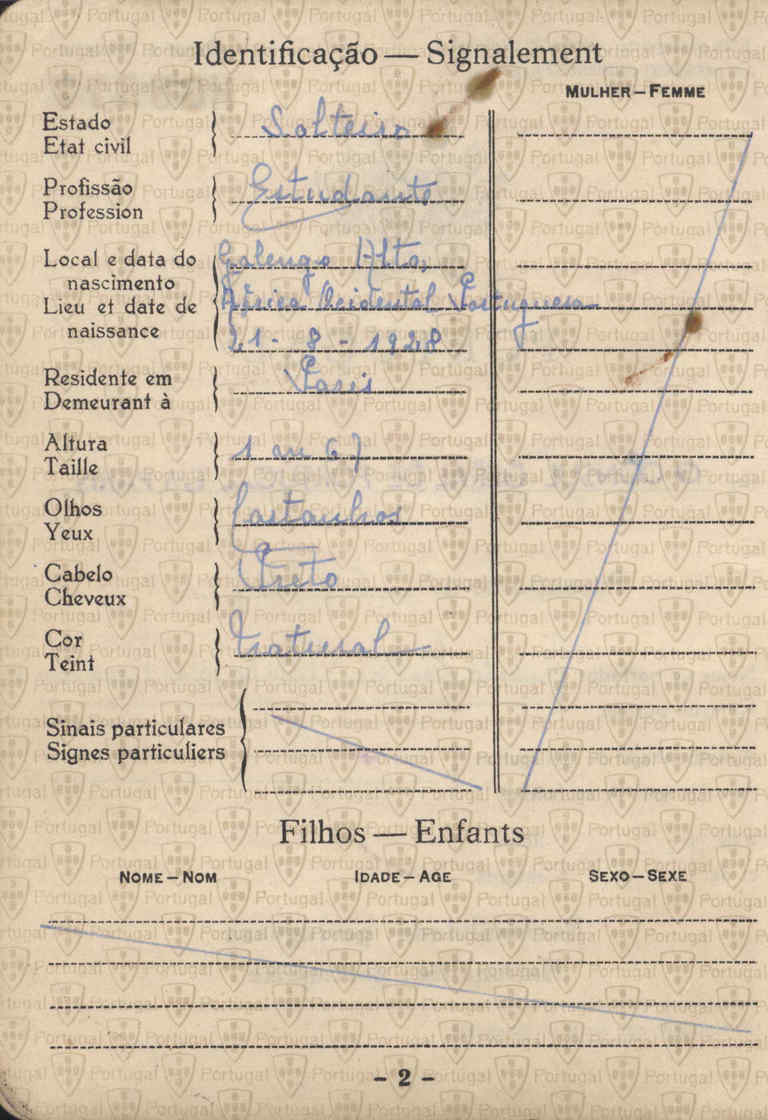 Identificação — Signalement
MULHER – FEMME
Estado Solteiro
Etat civil
Profissão Estudante
Profession
Local e data do Golungo Alto,
nascimento
Lieu et date de África Ocidental Portuguesa
naissance 21 - 8 - 1928
Residente em Paris
Demeurant à
Altura 1 m 67
Taille
Olhos Castanhos
Yeux
Cabelo Preto
Cheveux
Cor Natural
Teint
Sinais particulares
Signes particuliers
Filhos — Enfants
NOME – NOM IDADE – AGE SEXO – SEXE
- 2 -